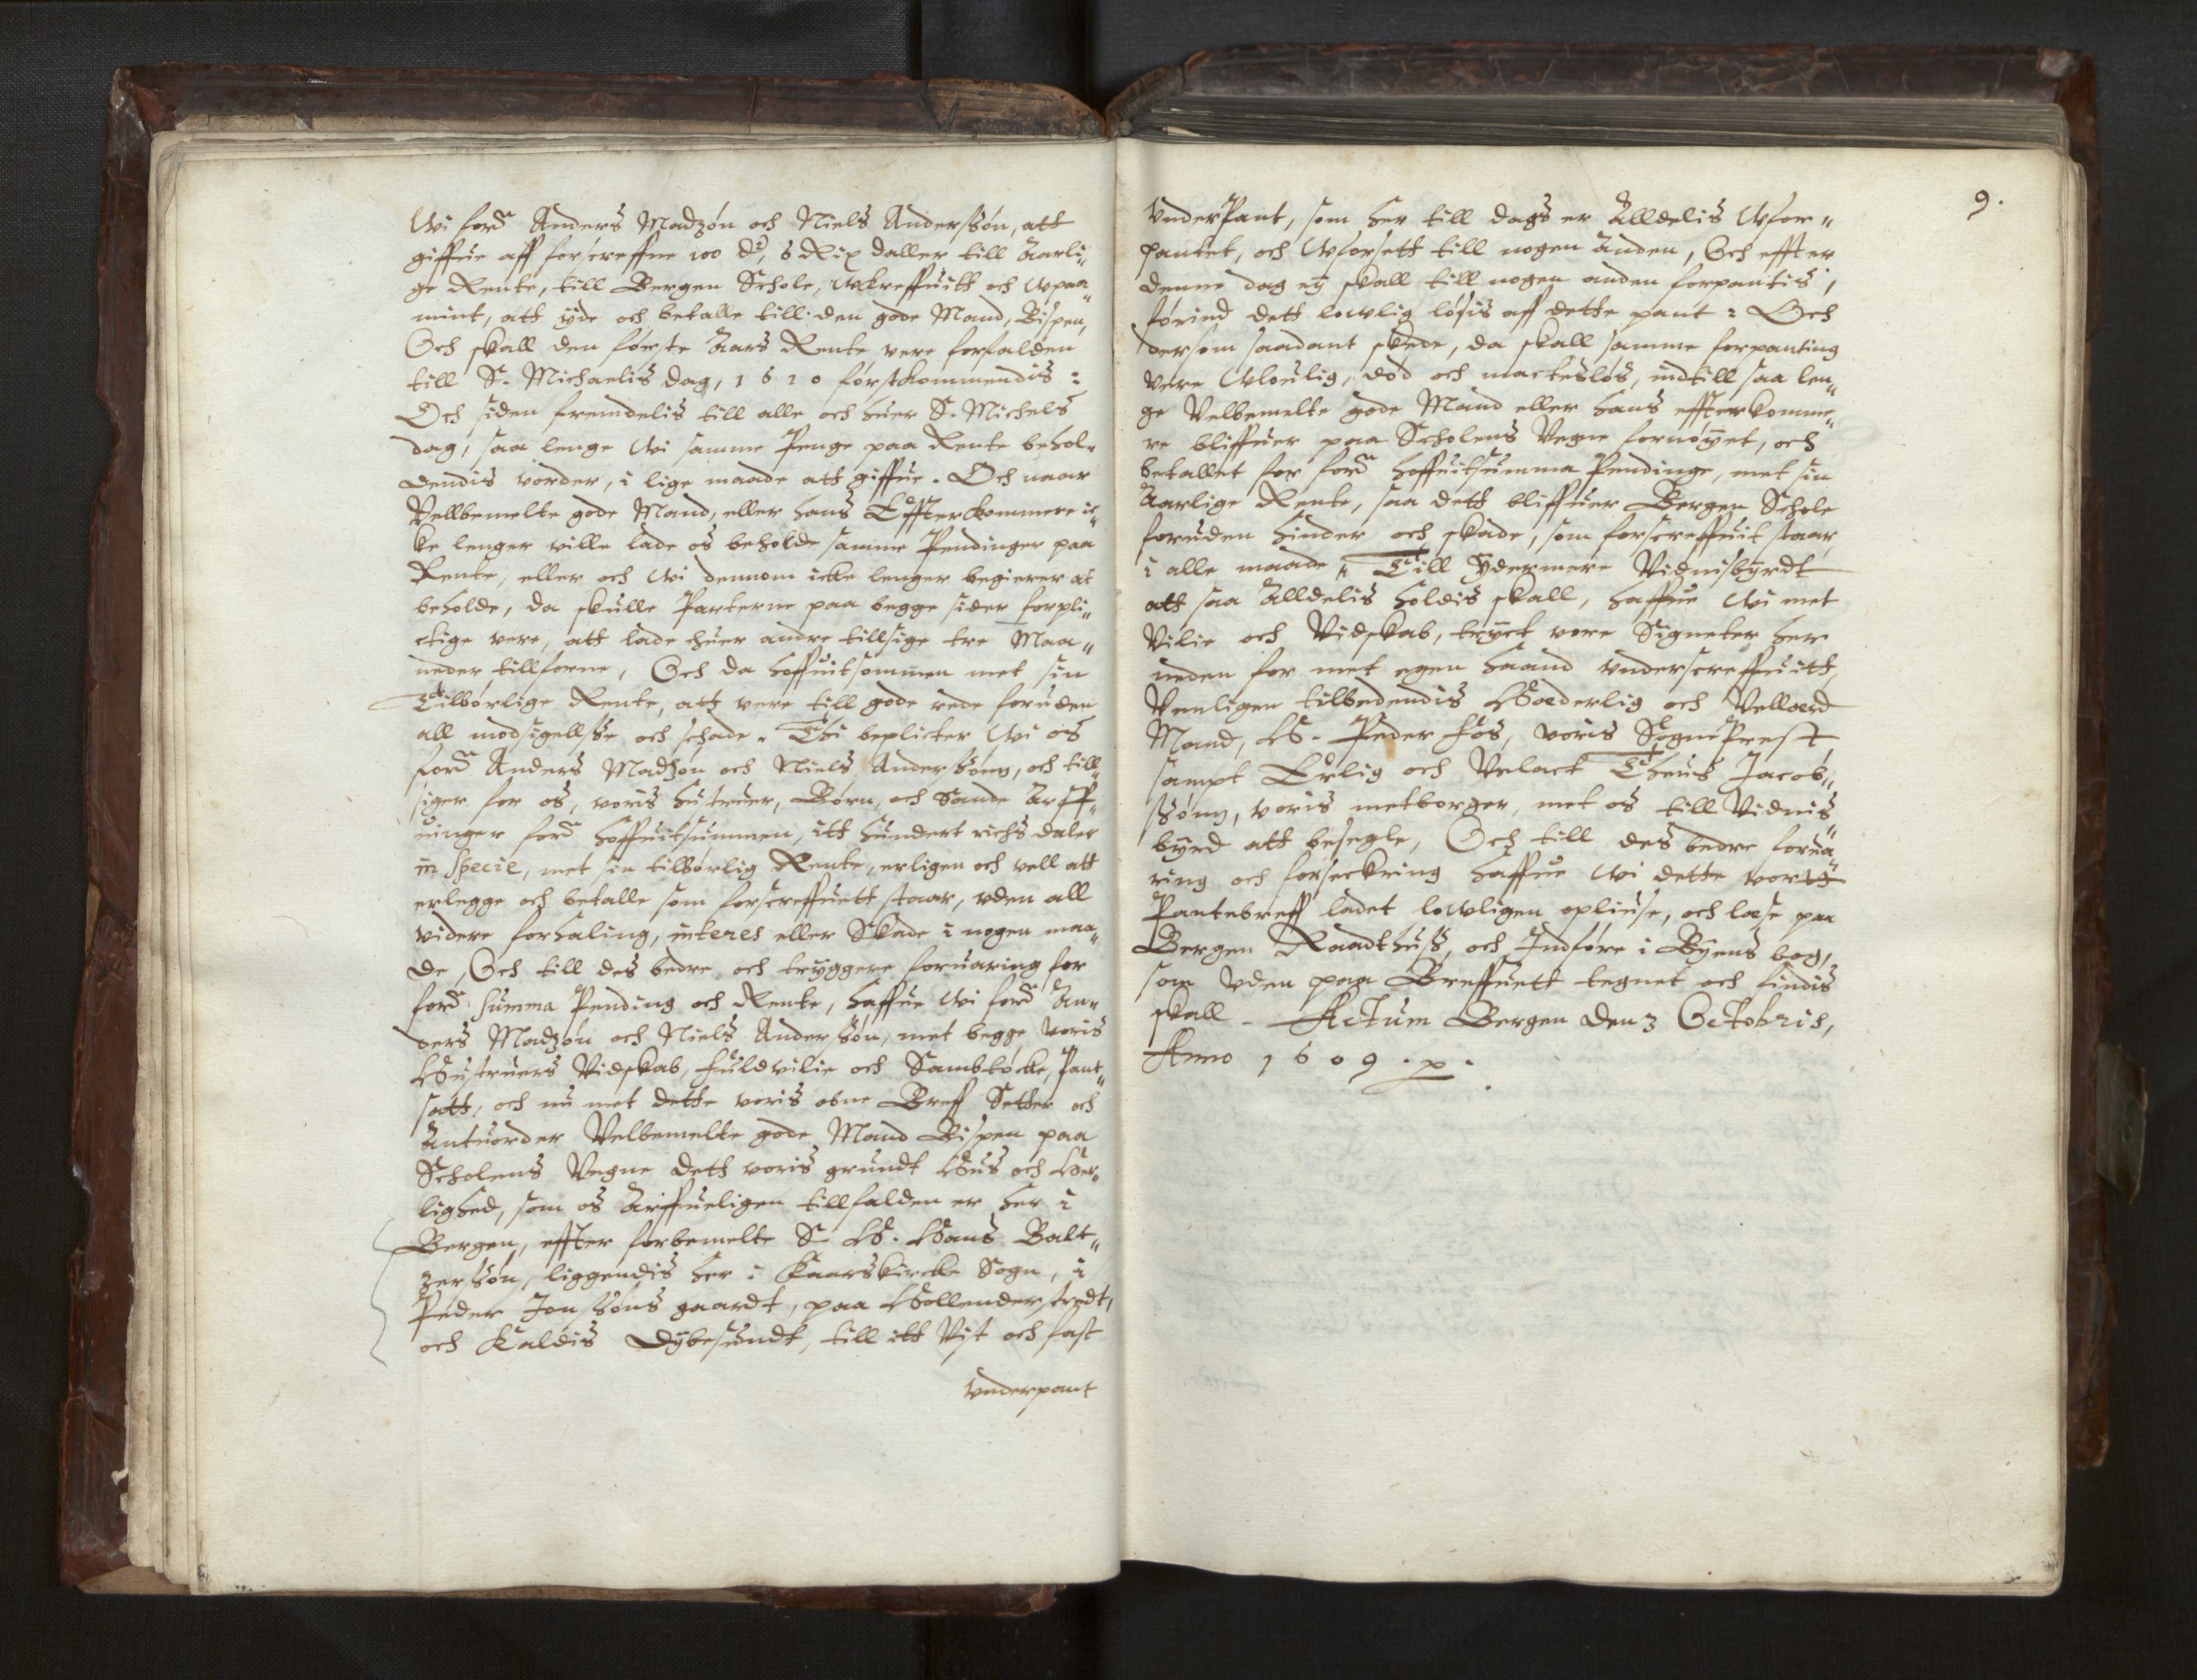 Wi ford Anders Madzøn och Niels Anderssøn, att
giffue aff forscreffne 100 dr, 6 Rix daller till Aarli„
ge Rente, till Bergen Schole, Wkreffuitt och Wpaa„
mint, att yde och betalle till den gode Mand, Bispen,
Och skall den første Aars Rente vere forfalden
till S. Michaelis dag, 1610 førstkommendis:
Och siden fremdelis till alle och huer S. Michels
dag, saa lenge Wi samme Penge paa Rente behol„
dendis vorder, i lige maade att giffue. Och naar
Vellbemelte gode Mand, eller hans Effterkommere ic„
ke lenger ville lade os beholde samme Pendinger paa
Rente, eller och Wi dennom icke lenger begierer at
beholde, da skulle Parterne paa begge sider forpli„
ctige vere, att lade huer andre tillsige tre Maa„
neder tillforne, Och da hoffuitsommen met sin
Tilbørlige Rente, att vere till gode rede foruden
all modsigellsse och schade. Thi beplicter Wi os
ford Anders Madzøn och Niels Anderssønn, och till„
siger for os, voris hustruer, Børn, och Sande Arff„
uinger ford hoffuitsummen, itt hundert richs daler
in Specie, met sin tilbørlig Rente, erligen och vell att
erlegge och betalle som forscreffuett staar, vden all
videre forhaling, interes eller Skade i nogen maa„
de, Och till des bedre och tryggere foruaring for
ford Summa Pending och Rente, haffue Wi ford An„
ders Madzøn och Niels Anderssøn, met begge voris
Hustruers Vidskab, fuldvilie och Sambtøcke, Pant„
satt, och nu met dette voris obne Breff Setter och
Antuorder Velbemelte gode Mand Bispen paa
Scholens Vegne dett voris grundt Hus och Her„
lighed, som os Arffueligen tillfalden er her i
Bergen, effter forbemelte S. H. Hans Balt„
zerssøn, liggendis her i Kaarskircke Sogn, i
Peder Jonssøns gaardt, paa Hollenderstredt,
och Kaldis Dybesundt, till itt Vist och fast
vnderpant
9.
VnderPant, som her till dags er Alldelis Wfor„
pantet, och Wforsett till nogen Anden, Och effter
denne dag ey skall till nogen anden forpantis,
førind dett lowlig løsis aff dette pant: Och
dersom saadant skede, da skall samme forpanting
vere Wloulig, død och mactesløs, indtill saa len„
ge Velbemelte gode Mand eller hans effterkomme„
re bliffuer paa Scholens Vegne fornøyet, och
betallet for ford hoffuitsumma Pendinge, met sin
Aarlige Rente, saa dett bliffuer Bergen Schole
foruden hinder och skade, som forscreffuit staar,
i alle maade„ Till ydermere Vidnisbyrdt
att saa Alldelis holdis skall, haffue Wi met
Vilie och Vidskab, tryct vore Signeter her
neden for met egen haand vnderscreffuitt,
Venligen tilbedendis Hæderlig och Vellærd
Mand, H. Peder Fos, voris SognePrest,
sampt Erlig och Velact Theus Jacob„
ssønn, voris metborger, met os till Vidnis„
byrd att besegle, Och till des bedre forua„
ring och forseckring haffue Wi dette vort
Pantebreff ladet lowligen opliuse, och læse paa
Bergen Raadthuss, och Indføre i Byens bog,
som vden paa Breffuett tegnet och findis
skall. Actum Bergen den 3 Octobris,
Anno 1609. p.